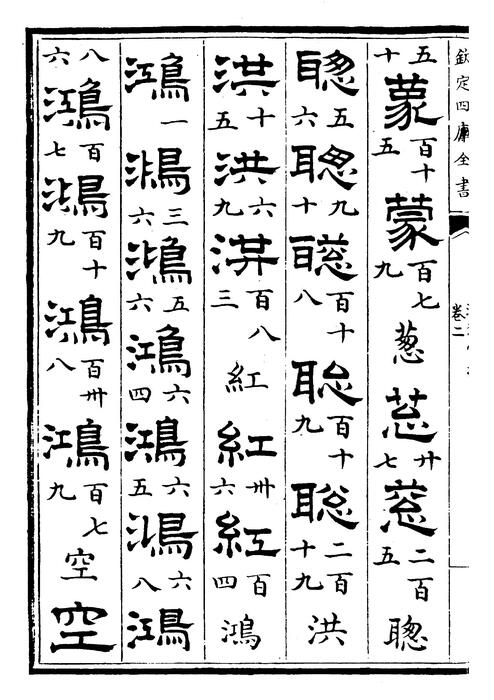 欽定四庫全書
卷二
五十蒙百十五蒙百七九葱葱廿七葱二百五聰
聦五六聦九十聦百十八聡百十九聡二百十九洪
洪十五洪六九洪百八三紅紅卅六紅百四鴻
鴻一鴻三六鴻五六鴻六四鴻六五鴻六八鴻
八六鴻百七鴻百十九鴻百卅八鴻百七九空空